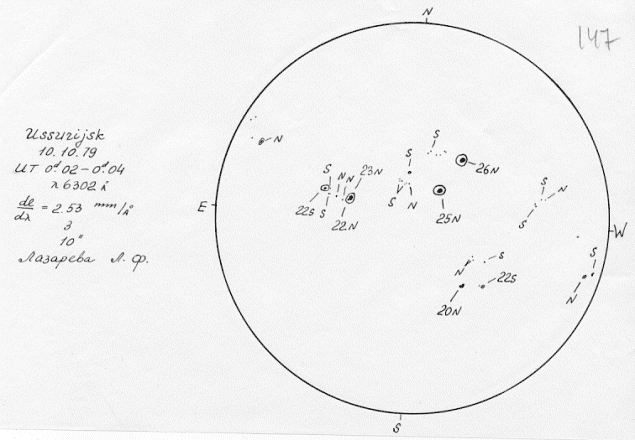 N
147
Ussurijsk
10.10.79
UT 0ᵈ.02-0ᵈ.04
λ 6302 Å
de/dλ = 2.53 mm/Å
3
10"
Лазарева Л. Ф.
N
S
S
26N
S
N
N
23N
22S
S
22N
S
N
25N
E
S
N
S
W
N
S
22S
20N
S
N
S